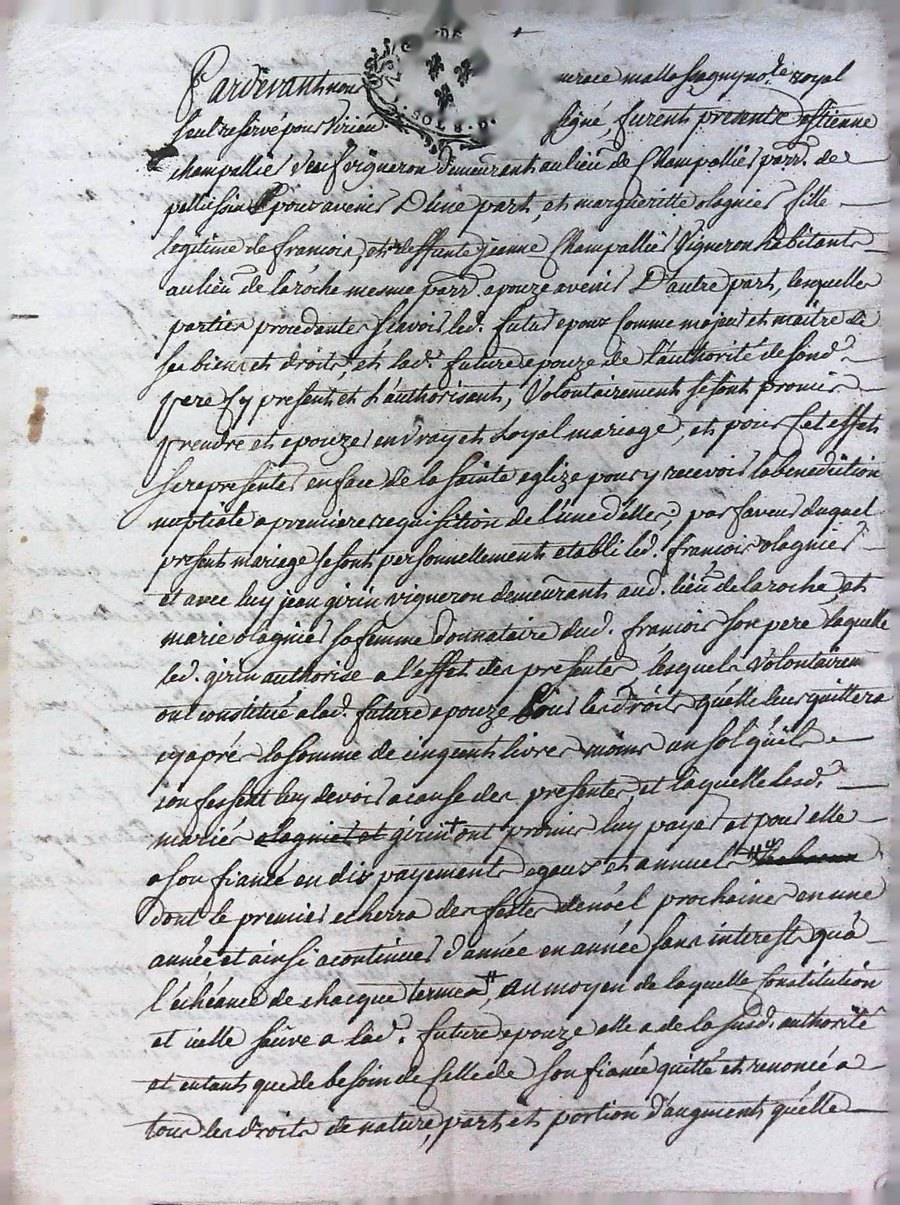 Pardevant nous malle royal
seul reservé pour Virieu signé, furent presents estienne
champallié veuf vigneron demeurant au lieu de Champallié parr. de
pour avenir D'une part, et margueritte olagnier fille
legitime de francois, et deffunte jeanne Champallié Vigneron habitants
au lieu de laroche mesme parr. epouze avenir D'autre part, lesquelles
parties procedantes sçavoir led. futur epoux comme majeur et maitre de
ses biens et droits, et lad. future epouze de l'authorité de sond.
pere cy present et l'authorisant, Volontairement se sont promis
prendre et epouzer en vray et loyal mariage, et pour cet effet
se representer en face de la sainte eglize pour y recevoir la benediction
nuptiale a premiere requisition de l'une d'elles, par faveur duquel
present mariage se sont personnellement etabli led. francois olagnier
et avec luy jean girin vigneron demeurant aud. lieu de laroche, et
marie olagnier sa femme donnataire dud. francois son pere laquelle
led. girin authorise a l'effet des presentes, lesquels volontairem
ont constitué a lad. future epouze tous les droits quelle leur quittera
cy apré la somme de cinq cents livres moins un sol qu'ils
confessent luy devoir a cause des presentes, et laquelle lesd.
mariés olagnier et girin + ont promis luy payer et pour elle
a son fiancé en dix payements egaux et annuels
dont le premier echerra des festes de noël prochaines en une
année et ainsi a continuer d'année en année sans interests qu'a
l'échéance de chacque termes #, au moyen de laquelle Constitution
et icelle sauve a lad. future epouze elle a de la susd. authorité
et entant que de besoin de celle de son fiancé quitté et renoncé a
tous les droits de nature, part et portion d'augment qu'elle